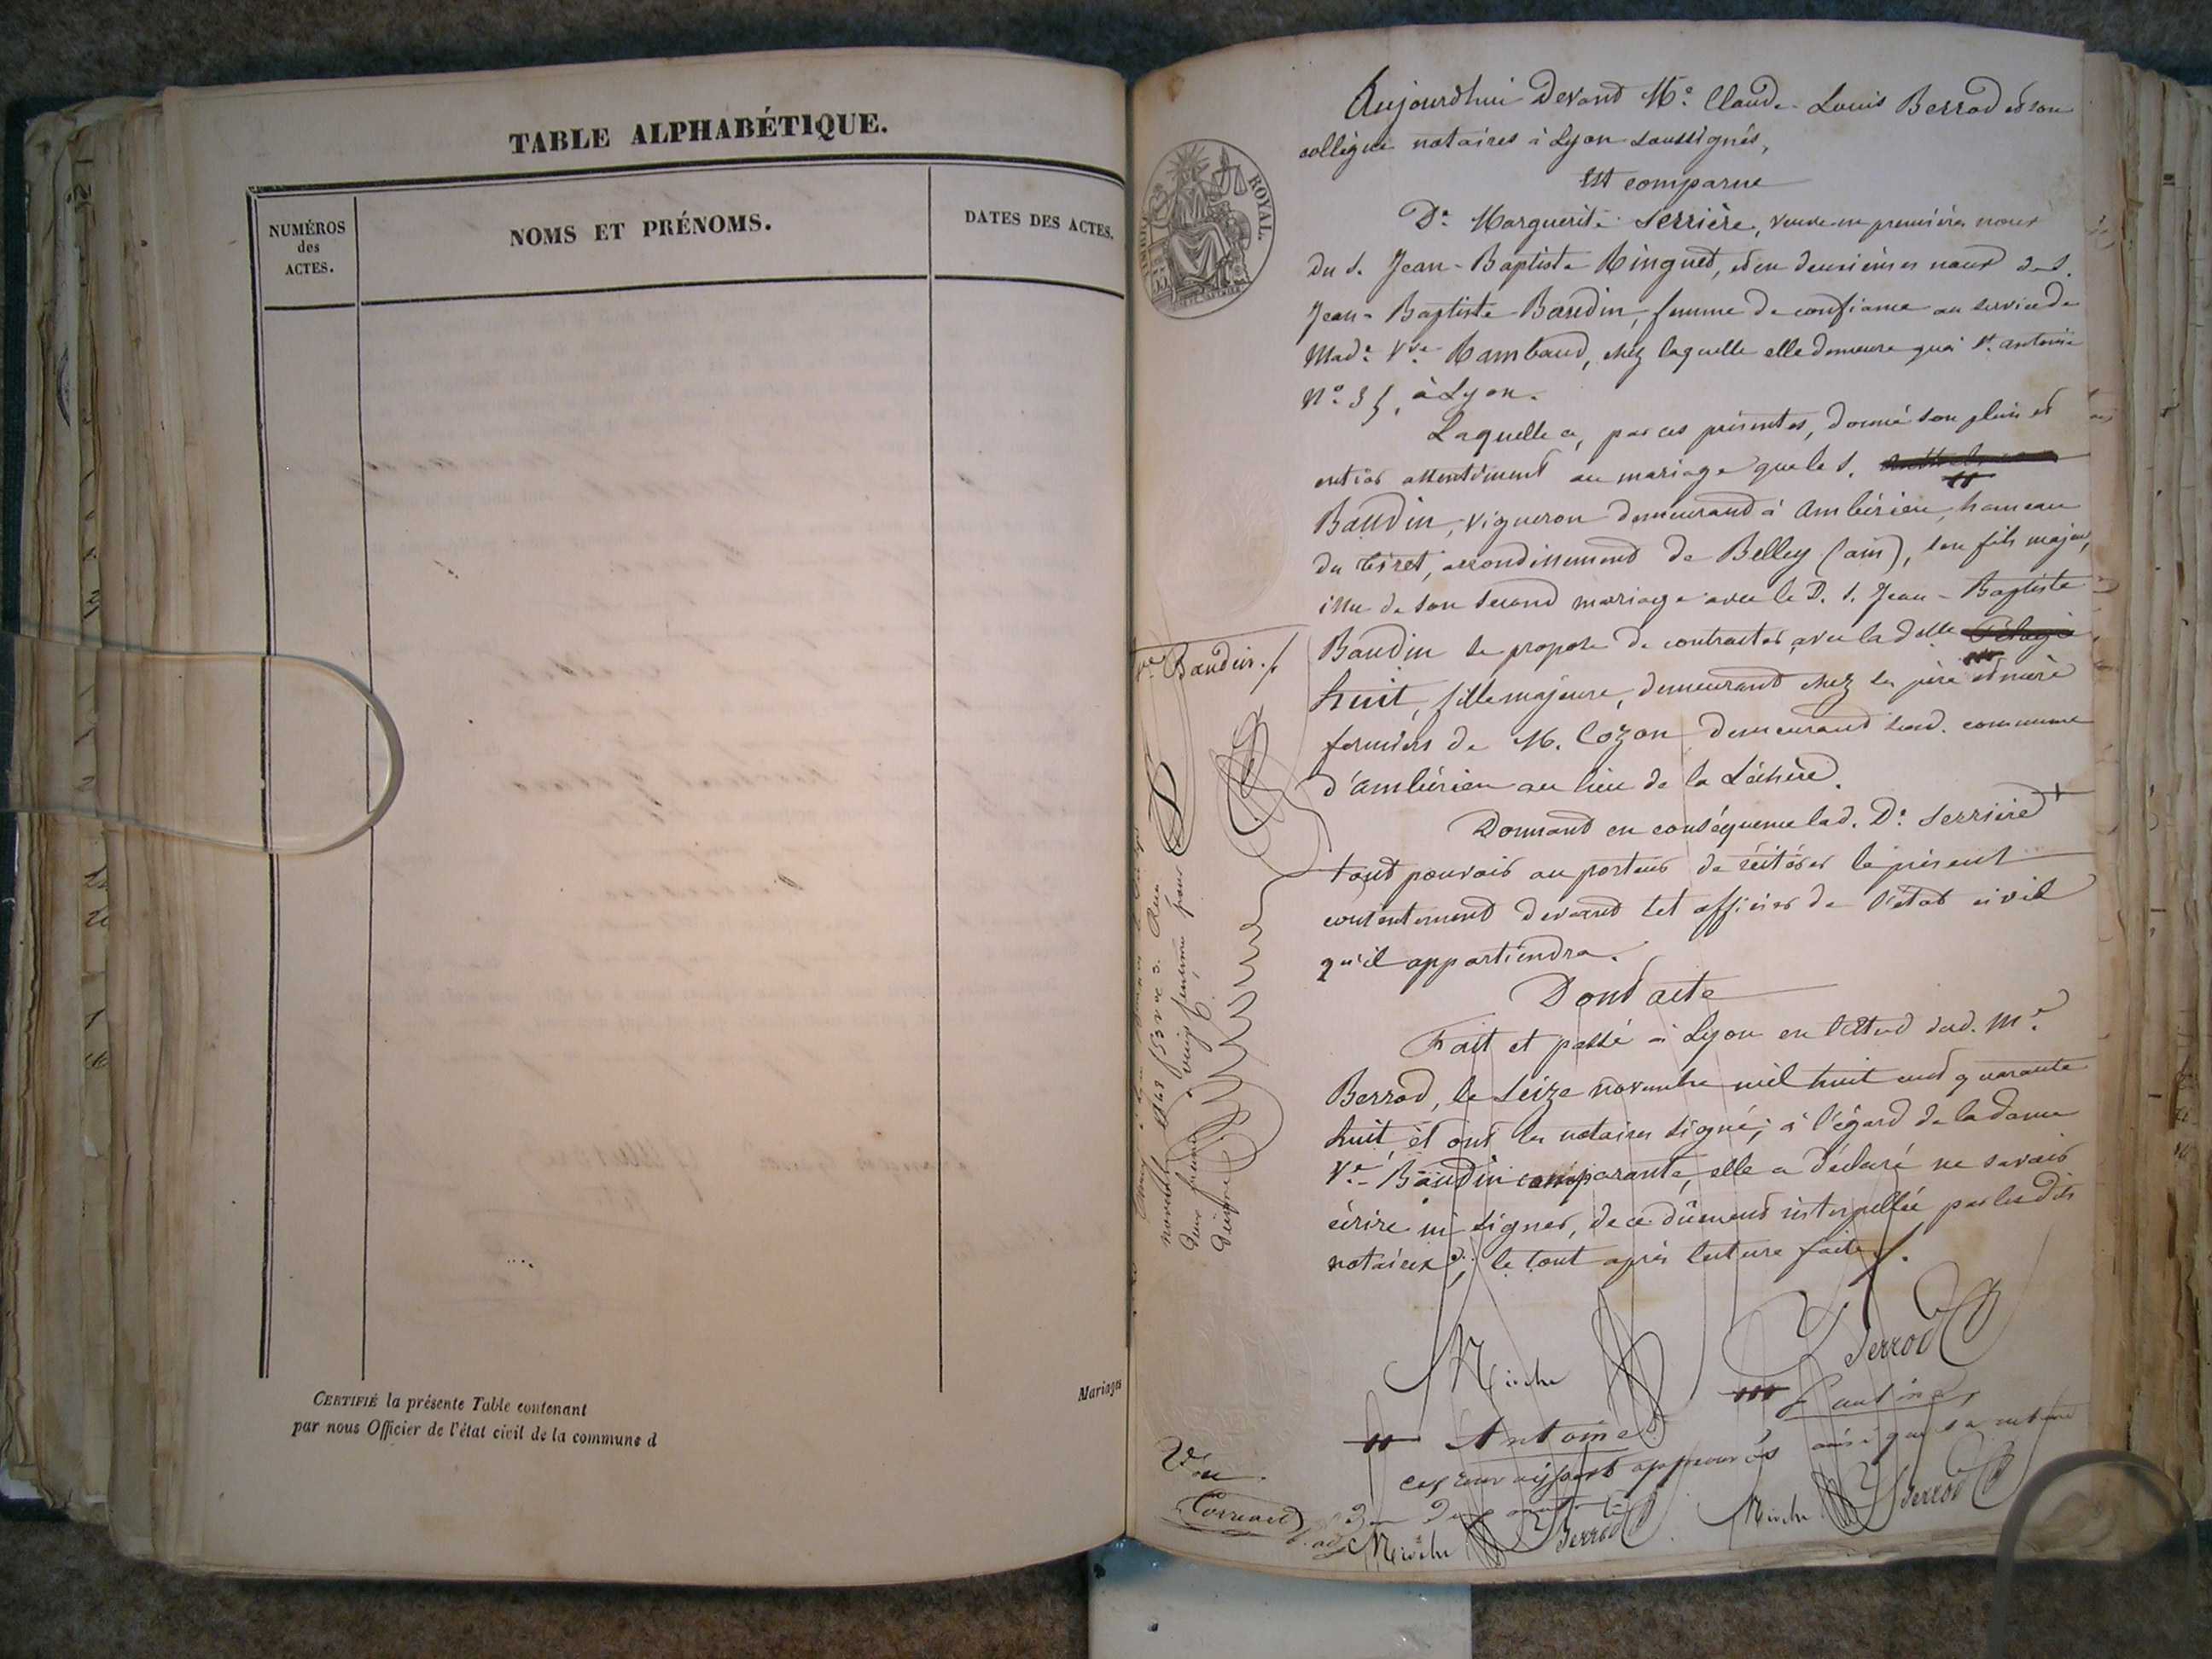 TABLE ALPHABÉTIQUE.
NUMÉROS
des
ACTES.
NOMS ET PRÉNOMS.
DATES DES ACTES.
CERTIFIÉ la présente Table contenant
par nous Officier de l'état civil de la commune d
Mariages
TIMBRE ROYAL.
Aujourdhui Devant Me. Claude-Louis Berrod et son
collègue notaires à Lyon soussignés,
Est comparue
De. Marguerite Serrière, veuve en premières noces
du s. Jean-Baptiste Ringuet, et en deuxièmes noces du s.
Jean-Baptiste Baudin, femme de confiance au service de
Made. Vve. Rambaud, chez laquelle elle demeure quai St. antoine
No. 35, à Lyon.
Laquelle a, par ces présentes, donné son plein et
entier assentiment au mariage que le s.
Baudin, vigneron demeurant à Ambérieu, hameau
du tiret, arrondissement de Belley (ain), son fils majeur,
issu de son second mariage avec le D. s. Jean-Baptiste
Baudin se propose de contracter avec la delle
huit, fille majeure, demeurant chez ses père et mère
fermiers de M. Cozon demeurant sud. commune
d'ambérieu au lieu de la Léchère.
Donnant en conséquence lad. De. Serrière
tout pouvoir au porteur de réitérer le présent
consentement devant tel officier de l'état civil
qu'il appartiendra.
Dont acte
Fait et passé à Lyon en l'étude dud. Me.
Berrod, le seize novembre mil huit cent quarante
huit, et ont les notaires signé; à l'égard de la dame
Ve. Baudin comparante, elle a déclaré ne savoir
écrire ni signer, de ce dûment interpellée par lesdits
notaires, le tout après lecture faite.
Ve. Baudin.
novembre 1848 f 53 v c 3. Reçu
deux francs vingt centimes pour
décime
Mioche
Berrod
Antoine
Pautine
ces renvois sont approuvés ainsi que la rature
de deux mots
Mioche Berrod Mioche Berrod
Vu